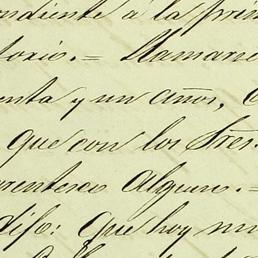 ndiente á la prim
torio.= Llamarse
enta y un años,
que con los Tres.
arentesco Alguno.=
dijo: Que hoy